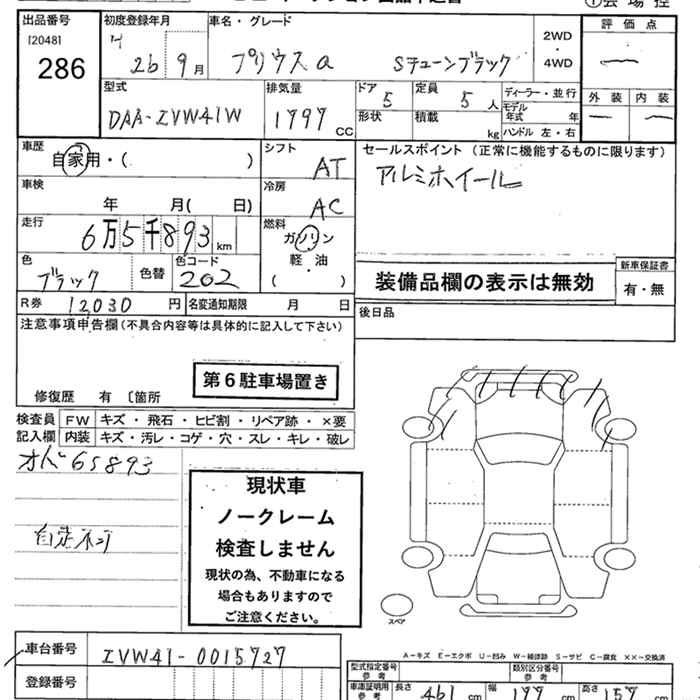 出品番号
[2048]
286
初度登録年月
H 26 9月
車名・グレード
プリウスα Sチューンブラック
2WD
・
4WD
評価点
外装 内装
型式
DAA-ZVW41W
排気量
1797 CC
ドア 5
定員 5人
ディーラー・並行
形状
積載 kg
モデル年式 年
ハンドル 左・右
車歴
自家用・( )
シフト
AT
セールスポイント (正常に機能するものに限ります)
アルミホイール
車検
年 月( 日)
冷房
AC
走行
6万5千893km
燃料
ガソリン
軽・油
( )
色
ブラック
色替
色コード
202
装備品欄の表示は無効
新車保証書
有・無
R券 12030円
名変通知期限 月 日
後日品
注意事項申告欄(不具合内容等は具体的に記入して下さい)
第6駐車場置き
修復歴 有 〔箇所
検査員
記入欄
FW キズ・飛石・ヒビ割・リペア跡・×要
内装 キズ・汚レ・コゲ・穴・スレ・キレ・破レ
オドメ65893
現状車
ノークレーム
検査しません
現状の為、不動車になる
場合もありますので
ご注意ください。
スペア
車台番号 ZVW41-0015727
登録番号
A-キズ E-エクボ U-凹み W-補修跡 S-サビ C-腐食 ××-交換済
型式指定番号
参考
類別区分番号
参考
車庫証明用
参考
長さ 461 cm 幅 177 cm 高さ 157 cm